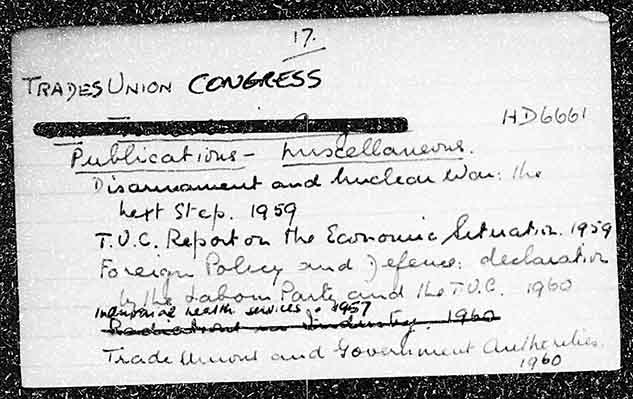 17.
TRADES UNION CONGRESS
HD6661
Publications - Miscellaneous.
Disarmament and Nuclear War: the
next Step. 1959
T.U.C. Report on the Economic Situation. 1959
Foreign Policy and Defence: declaration
by the Labour Party and the T.U.C. 1960
Industrial health services. 1957
Radiation in Industry. 1960
Trade Unions and Government Authorities.
1960